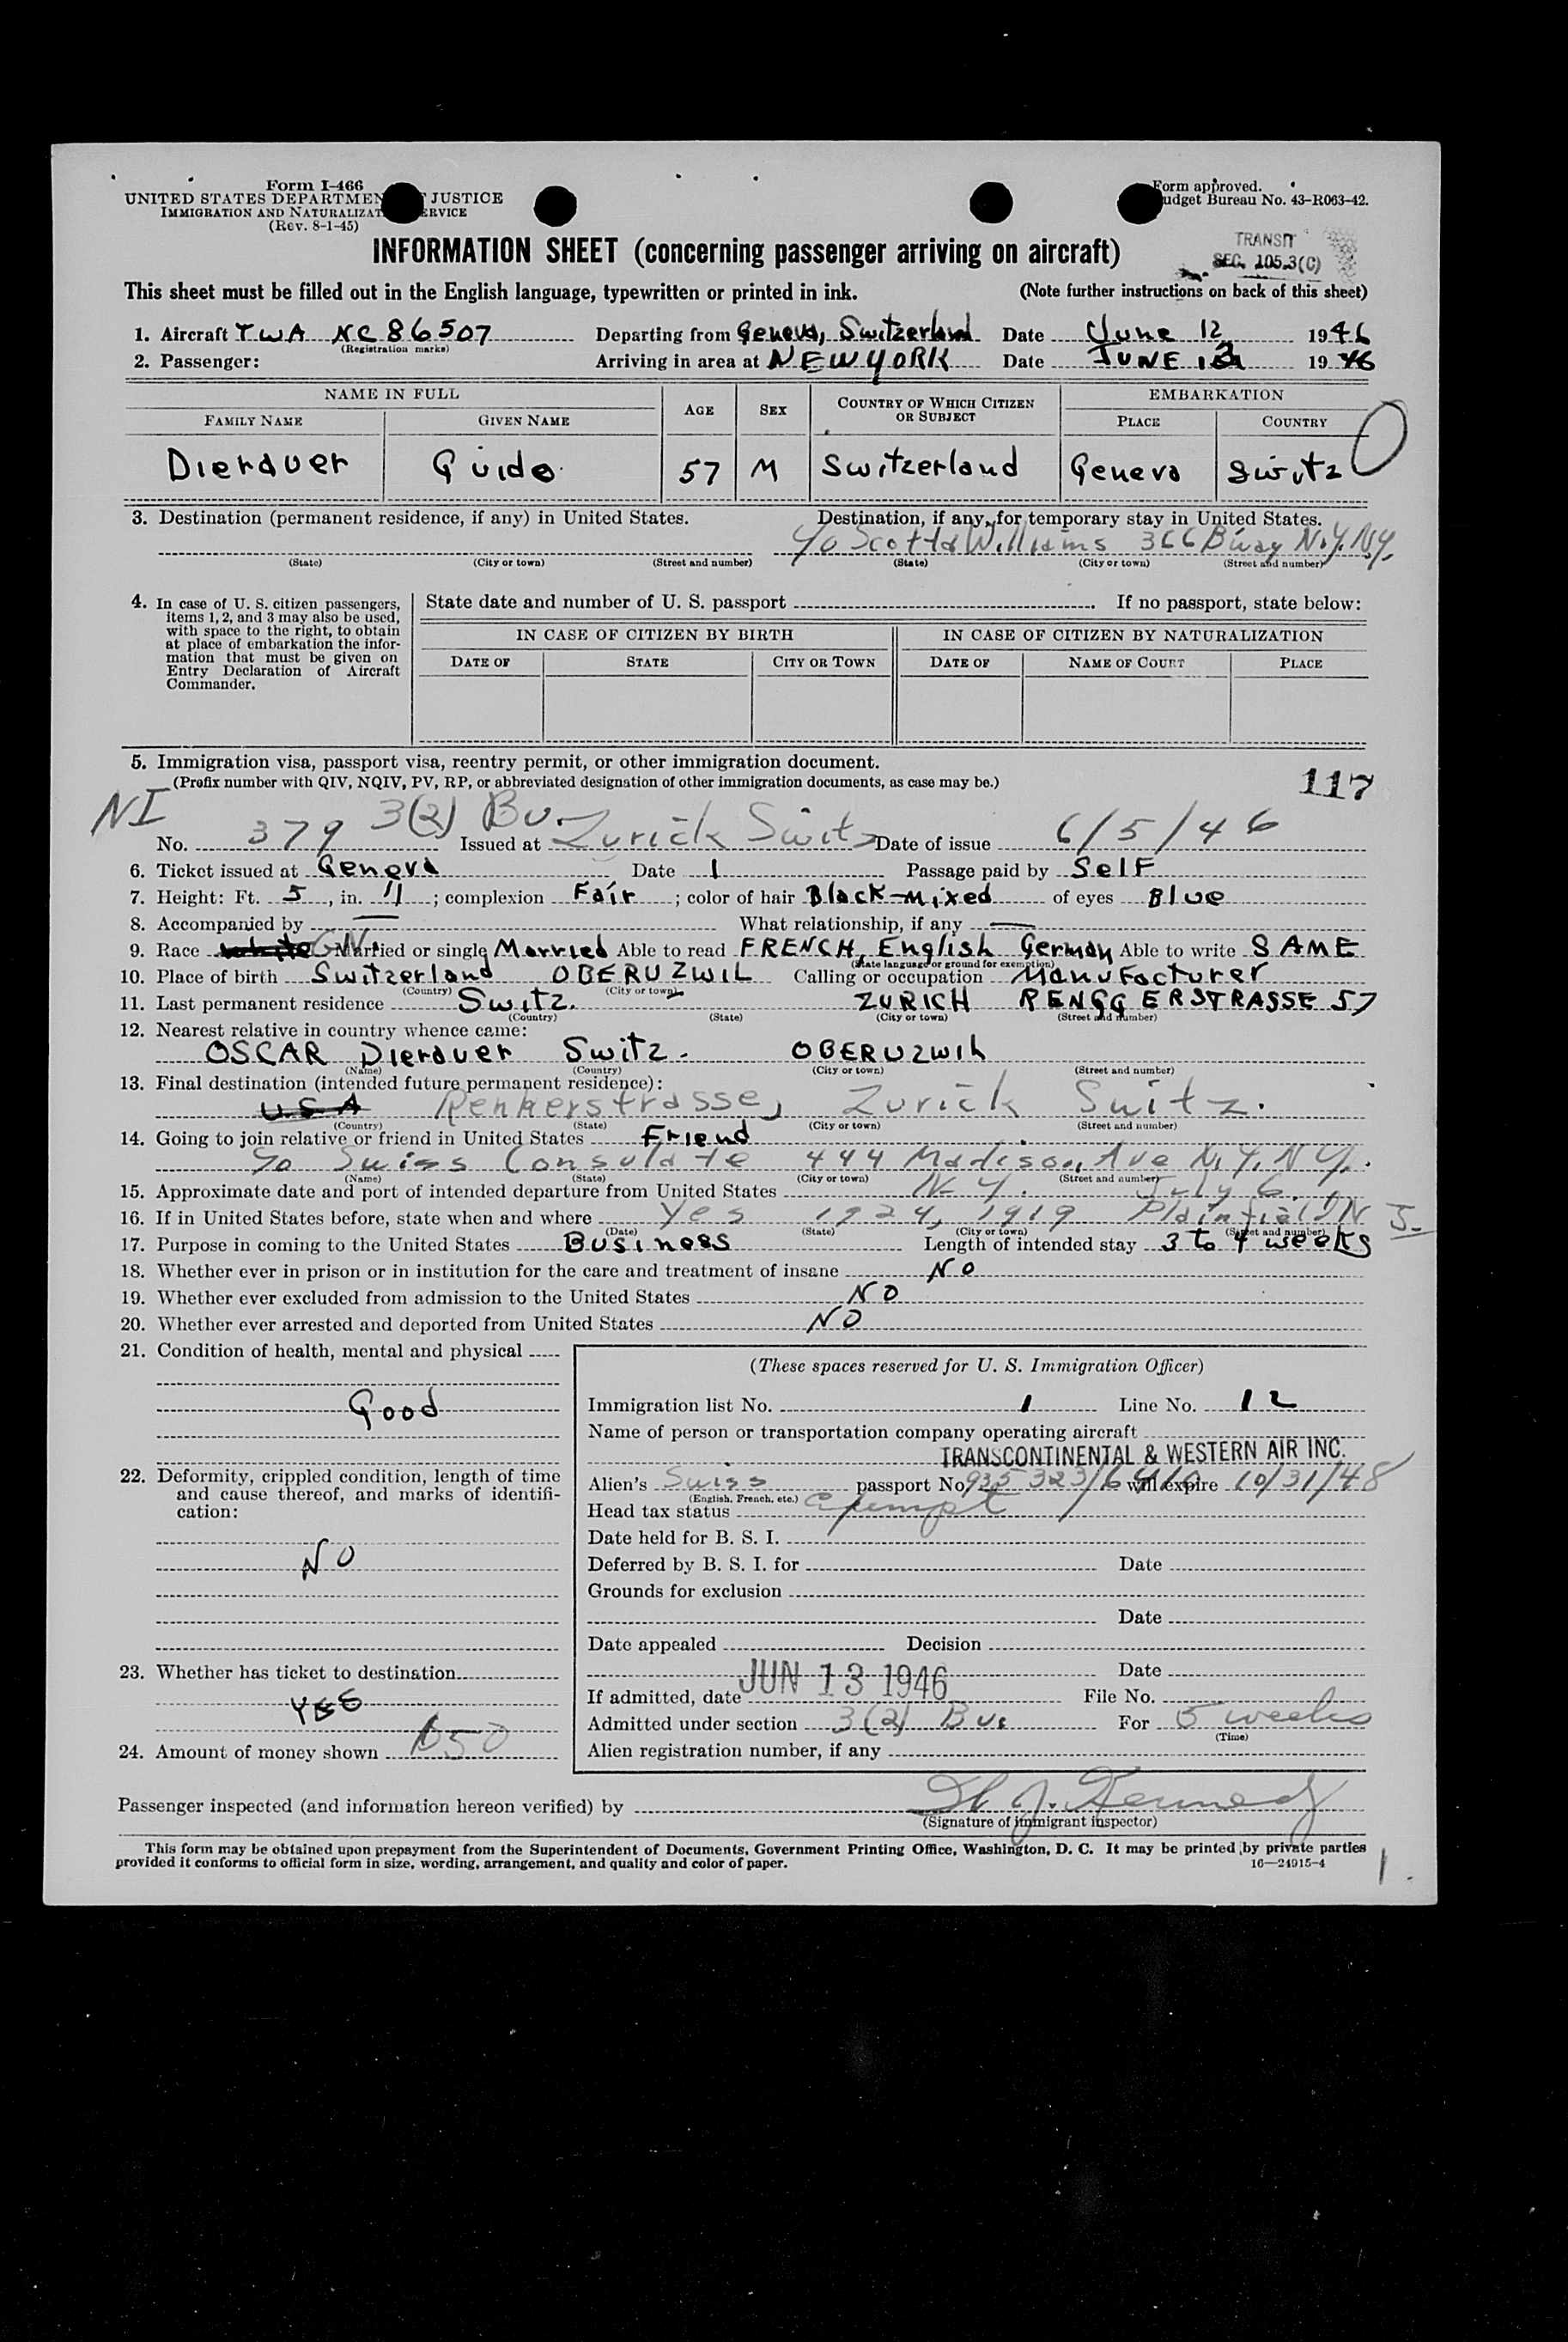 Form I-466
UNITED STATES DEPARTMEN JUSTICE
IMMIGRATION AND NATURALIZAT ERVICE
(Rev. 8-1-45)
Form approved.
udget Bureau No. 43-R063-42.
INFORMATION SHEET (concerning passenger arriving on aircraft)
TRANSIT
SEC. 105.3(C)
This sheet must be filled out in the English language, typewritten or printed in ink. (Note further instructions on back of this sheet)
1. Aircraft TWA NC 86507 Departing from Geneva, Switzerland Date June 12 1946
(Registration marks)
2. Passenger: Arriving in area at NEW YORK Date JUNE 13 1946
NAME IN FULL AGE SEX COUNTRY OF WHICH CITIZEN OR SUBJECT EMBARKATION
FAMILY NAME GIVEN NAME PLACE COUNTRY
Dierauer Guido 57 M Switzerland Geneva Switz
3. Destination (permanent residence, if any) in United States. Destination, if any, for temporary stay in United States.
c/o Scott & Williams 366 Bway N.Y. N.Y.
(State) (City or town) (Street and number) (State) (City or town) (Street and number)
4. In case of U. S. citizen passengers, items 1, 2, and 3 may also be used, with space to the right, to obtain at place of embarkation the information that must be given on Entry Declaration of Aircraft Commander.
State date and number of U. S. passport . If no passport, state below:
IN CASE OF CITIZEN BY BIRTH IN CASE OF CITIZEN BY NATURALIZATION
DATE OF STATE CITY OR TOWN DATE OF NAME OF COURT PLACE
5. Immigration visa, passport visa, reentry permit, or other immigration document.
(Prefix number with QIV, NQIV, PV, RP, or abbreviated designation of other immigration documents, as case may be.)
117
NI 3(2) Bu.
No. 379 Issued at Zurick Switz Date of issue 6/5/46
6. Ticket issued at Geneva Date 1 Passage paid by Self
7. Height: Ft. 5, in. 11; complexion Fair; color of hair Black-Mixed of eyes Blue
8. Accompanied by — What relationship, if any —
9. Race white GN. Married or single Married Able to read FRENCH, English German Able to write SAME
(State language or ground for exemption)
10. Place of birth Switzerland OBERUZWIL Calling or occupation Manufacturer
(Country) (City or town)
11. Last permanent residence Switz. ZURICH RENGGERSTRASSE 57
(Country) (State) (City or town) (Street and number)
12. Nearest relative in country whence came:
OSCAR Dierauer Switz. OBERUZWIL
(Name) (Country) (City or town) (Street and number)
13. Final destination (intended future permanent residence):
USA Renkerstrasse, Zurick Switz.
(Country) (State) (City or town) (Street and number)
14. Going to join relative or friend in United States Friend
c/o Swiss Consulate 444 Madison Ave N.Y. N.Y.
(Name) (State) (City or town) (Street and number)
15. Approximate date and port of intended departure from United States N.Y. July 6.
16. If in United States before, state when and where Yes 1924, 1919 Plainfield N J.
(Date) (State) (City or town) (Street and number)
17. Purpose in coming to the United States Business Length of intended stay 3 to 4 weeks
18. Whether ever in prison or in institution for the care and treatment of insane No
19. Whether ever excluded from admission to the United States NO
20. Whether ever arrested and deported from United States NO
21. Condition of health, mental and physical
Good
22. Deformity, crippled condition, length of time and cause thereof, and marks of identification:
NO
23. Whether has ticket to destination
YES
24. Amount of money shown 650
(These spaces reserved for U. S. Immigration Officer)
Immigration list No. 1 Line No. 12
Name of person or transportation company operating aircraft
TRANSCONTINENTAL & WESTERN AIR INC.
Alien's Swiss passport No. will expire 10/31/48
(English, French, etc.)
Head tax status exempt
Date held for B. S. I.
Deferred by B. S. I. for Date
Grounds for exclusion
Date
Date appealed Decision
Date
JUN 13 1946
If admitted, date File No.
Admitted under section 3(2) Bus For 5 weeks
(Time)
Alien registration number, if any
Passenger inspected (and information hereon verified) by Kennedy
(Signature of immigrant inspector)
This form may be obtained upon prepayment from the Superintendent of Documents, Government Printing Office, Washington, D. C. It may be printed by private parties
provided it conforms to official form in size, wording, arrangement, and quality and color of paper. 16—24915-4